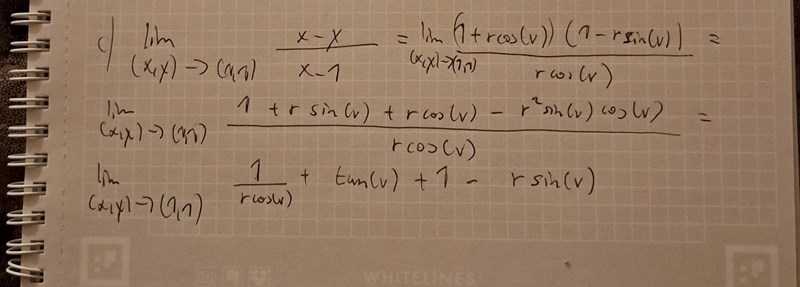 c) lim (x,y) → (1,1) x-y / x-1 = lim (x,y)→(1,1) (1+rcos(v)) (1-rsin(v)) / rcos(v) =
lim (x,y) → (1,1) 1 + r sin(v) + rcos(v) - r² sin(v) cos(v) / rcos(v) =
lim (x,y) → (1,1) 1 / rcos(v) + tan(v) + 1 - r sin(v)
WHITELINES